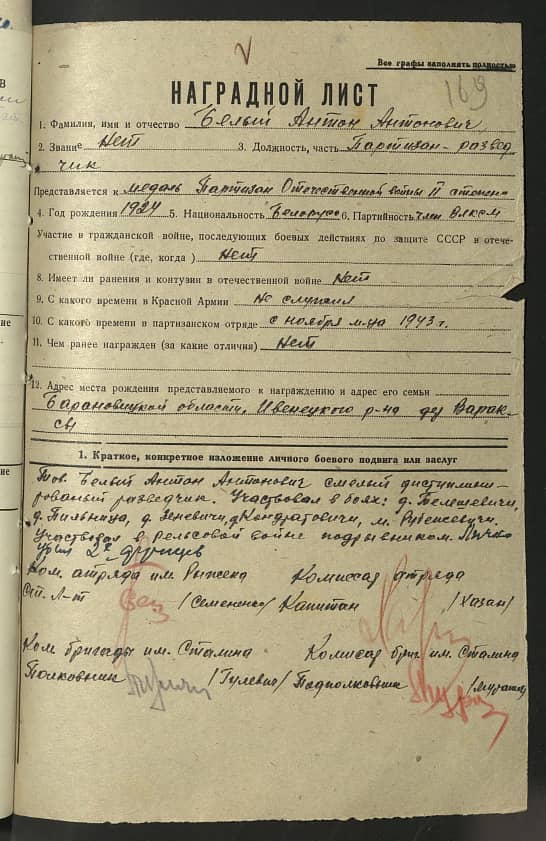 Все графы заполнять полностью
169
НАГРАДНОЙ ЛИСТ
1. Фамилия, имя и отчество Белый Антон Антонович
2. Звание Нет 3. Должность, часть Партизан-развед
чик
Представляется к медаль Партизан Отечественной войны II степени
4. Год рождения 1924 5. Национальность Белорус 6. Партийность член ВЛКСМ
Участие в гражданской войне, последующих боевых действиях по защите СССР и отече-
ственной войне (где, когда) Нет
8. Имеет ли ранения и контузии в отечественной войне Нет
9. С какого времени в Красной Армии Не служил
10. С какого времени в партизанском отряде с ноября м-ца 1943 г.
11. Чем ранее награжден (за какие отличия) Нет
12. Адрес места рождения представляемого к награждению и адрес его семьи
Барановицкой области, Ивенецкого р-на д. Варак-
сы
1. Краткое, конкретное изложение личного боевого подвига или заслуг
Тов. Белый Антон Антонович смелый дисциплини-
рованый разведчик. Участвовал в боях: д. Телешевичи,
д. Тильница, д. Зеневичи, д. Кондратовичи, м. Рубежевичи.
Участвовал в рельсовой войне подрывником. Лично
убил 2х фрицев
Ком. отряда им. Рыжека Комиссар отряда
Ст. Л-т /Семененко/ Капитан /Хазан/
Ком. бригады им. Сталина Комиссар бриг. им. Сталина
Полковник /Гулевич/ Подполковник